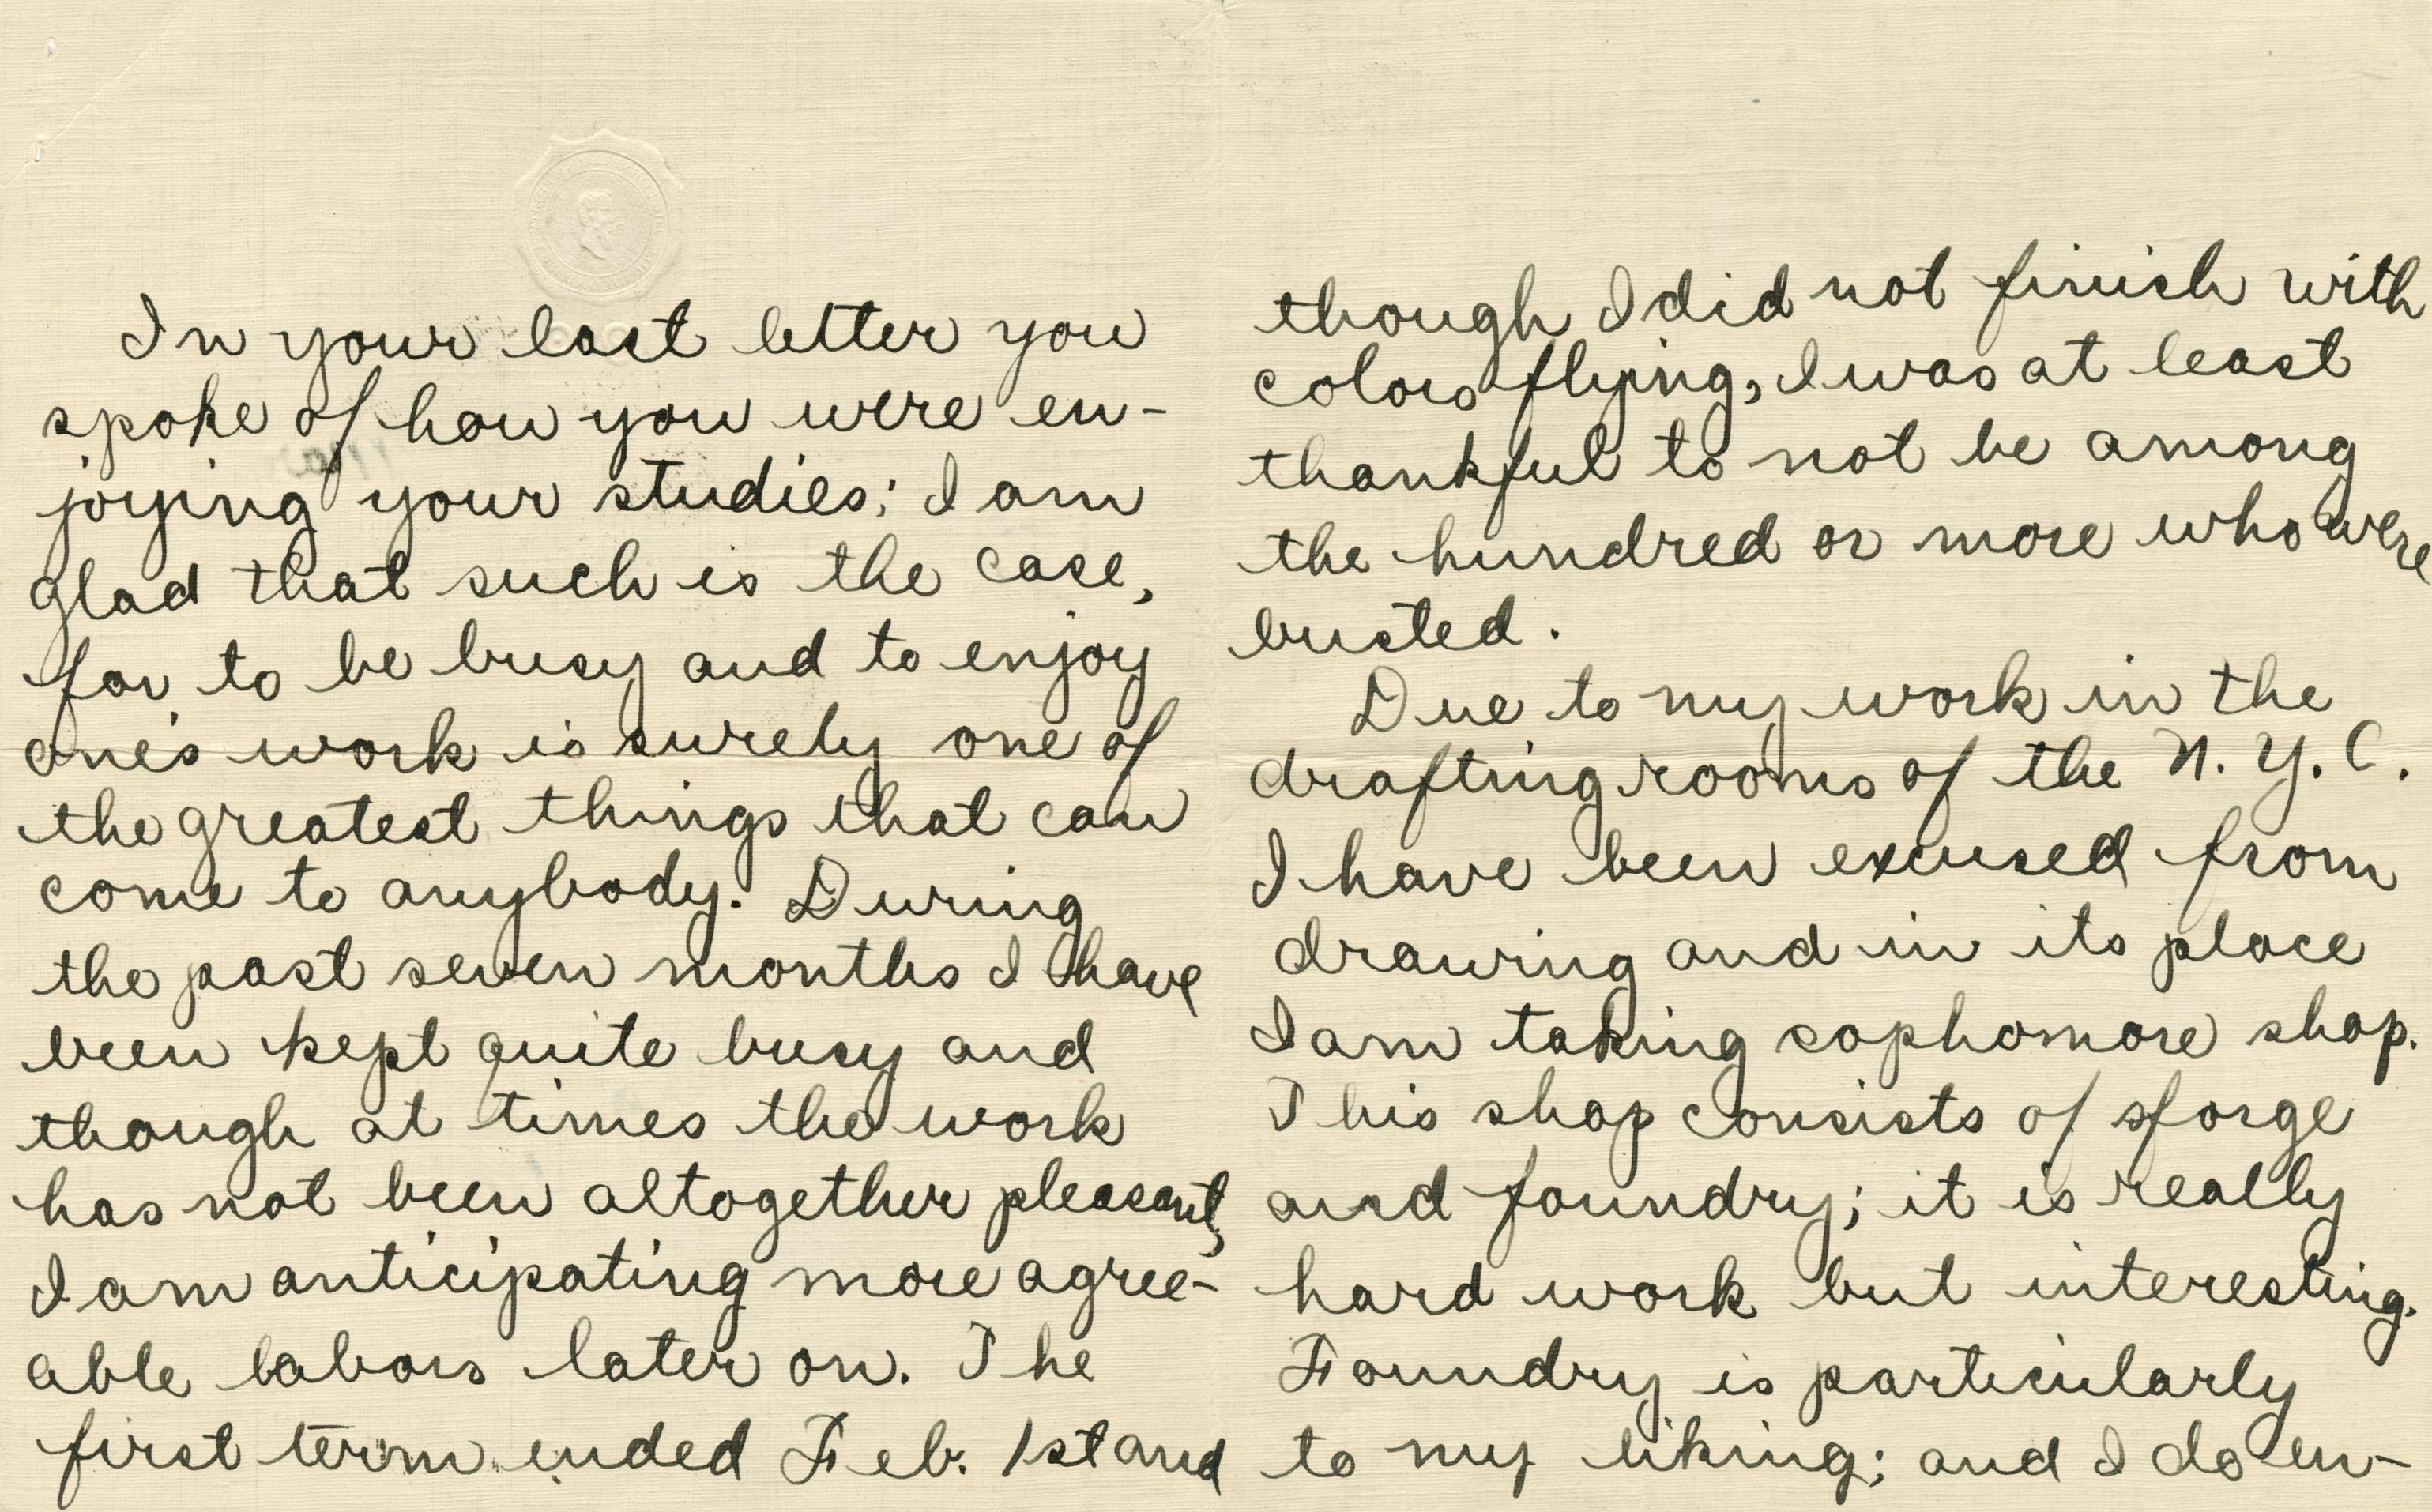 In your last letter you
spoke of how you were en-
joying your studies; I am
glad that such is the case,
for to be busy and to enjoy
one's work is surely one of
the greatest things that can
come to anybody. During
the past seven months I have
been kept quite busy and
though at times the work
has not been altogether pleasant,
I am anticipating more agree-
able labors later on. The
first term ended Feb. 1st and
though I did not finish with
colors flying, I was at least
thankful to not be among
the hundred or more who were
busted.
Due to my work in the
drafting rooms of the N. Y. C.
I have been excused from
drawing and in its place
I am taking sophomore shop.
This shop consists of forge
and foundry; it is really
hard work but interesting.
Foundry is particularly
to my liking; and I do en-